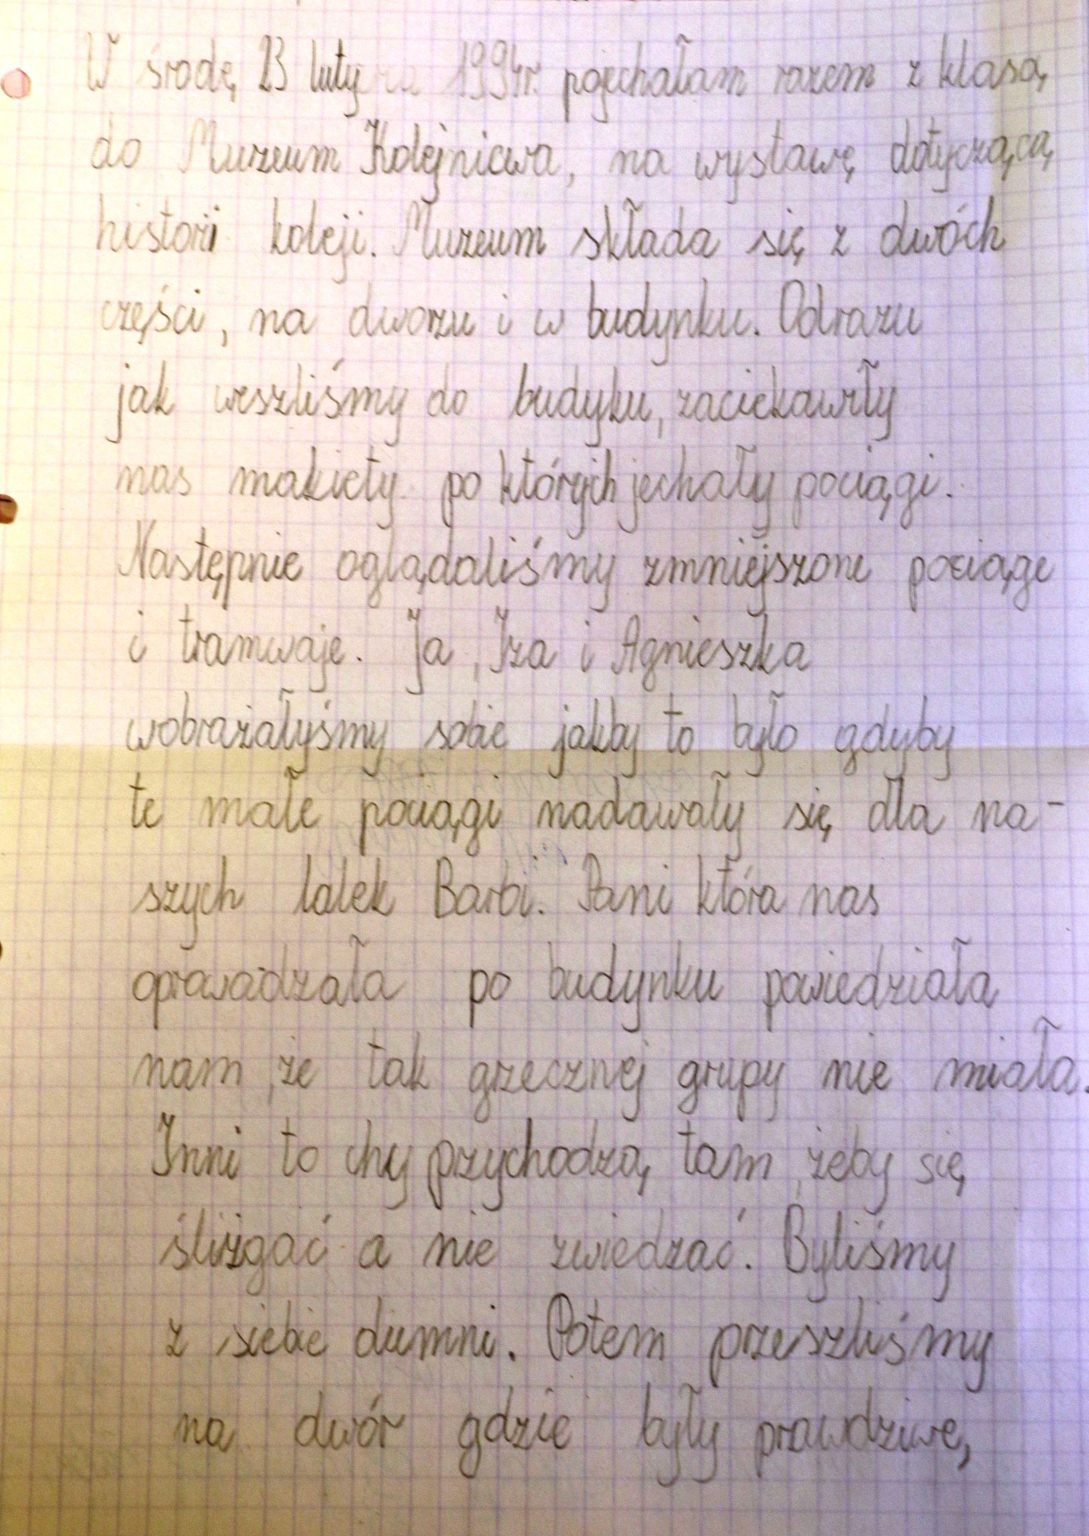 W środę 23 luty 1994r. pojechałam razem z klasą
do Muzeum Kolejnicwa, na wystawę dotyczącą
histori koleji. Muzeum składa się z dwóch
części, na dworzu i w budynku. Odrazu
jak weszliśmy do budyku, zaciekawiły
nas makiety po których jechały pociągi.
Następnie oglądaliśmy zmniejszone pociąge
i tramwaje. Ja, Iza i Agnieszka
wobrażałyśmy sobie jakby to było gdyby
te małe pociągi nadawały się dla na-
szych lalek Barbi. Pani która nas
oprowadzała po budynku powiedziała
nam, że tak grzecznej grupy nie miała.
Inni to chy przychodzą tam, żeby się
śliżgać a nie zwiedzać. Byliśmy
z siebie dumni. Potem przeszliśmy
na dwór gdzie były prawdziwe,